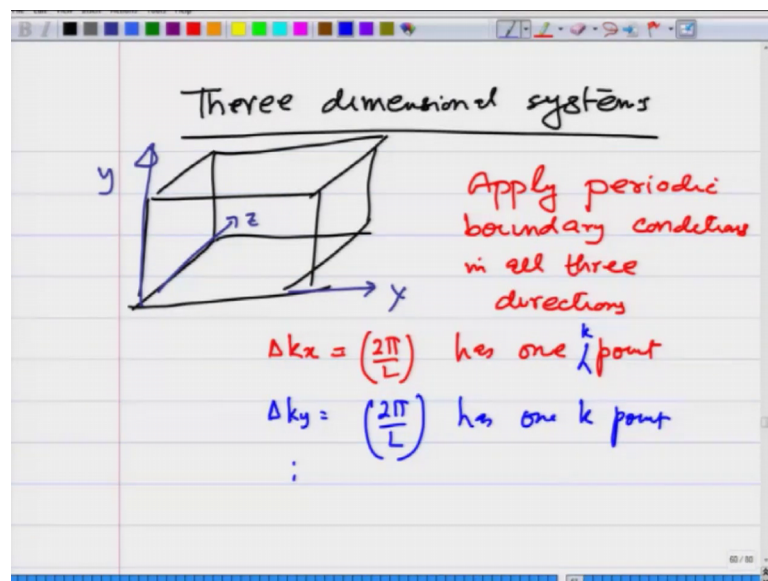 Theree dimensional systems
y
z
x
Apply periodic
boundary conditions
in all three
directions
Δkx = (2π/L) has one k point
Δky = (2π/L) has one k point
:
60 / 80